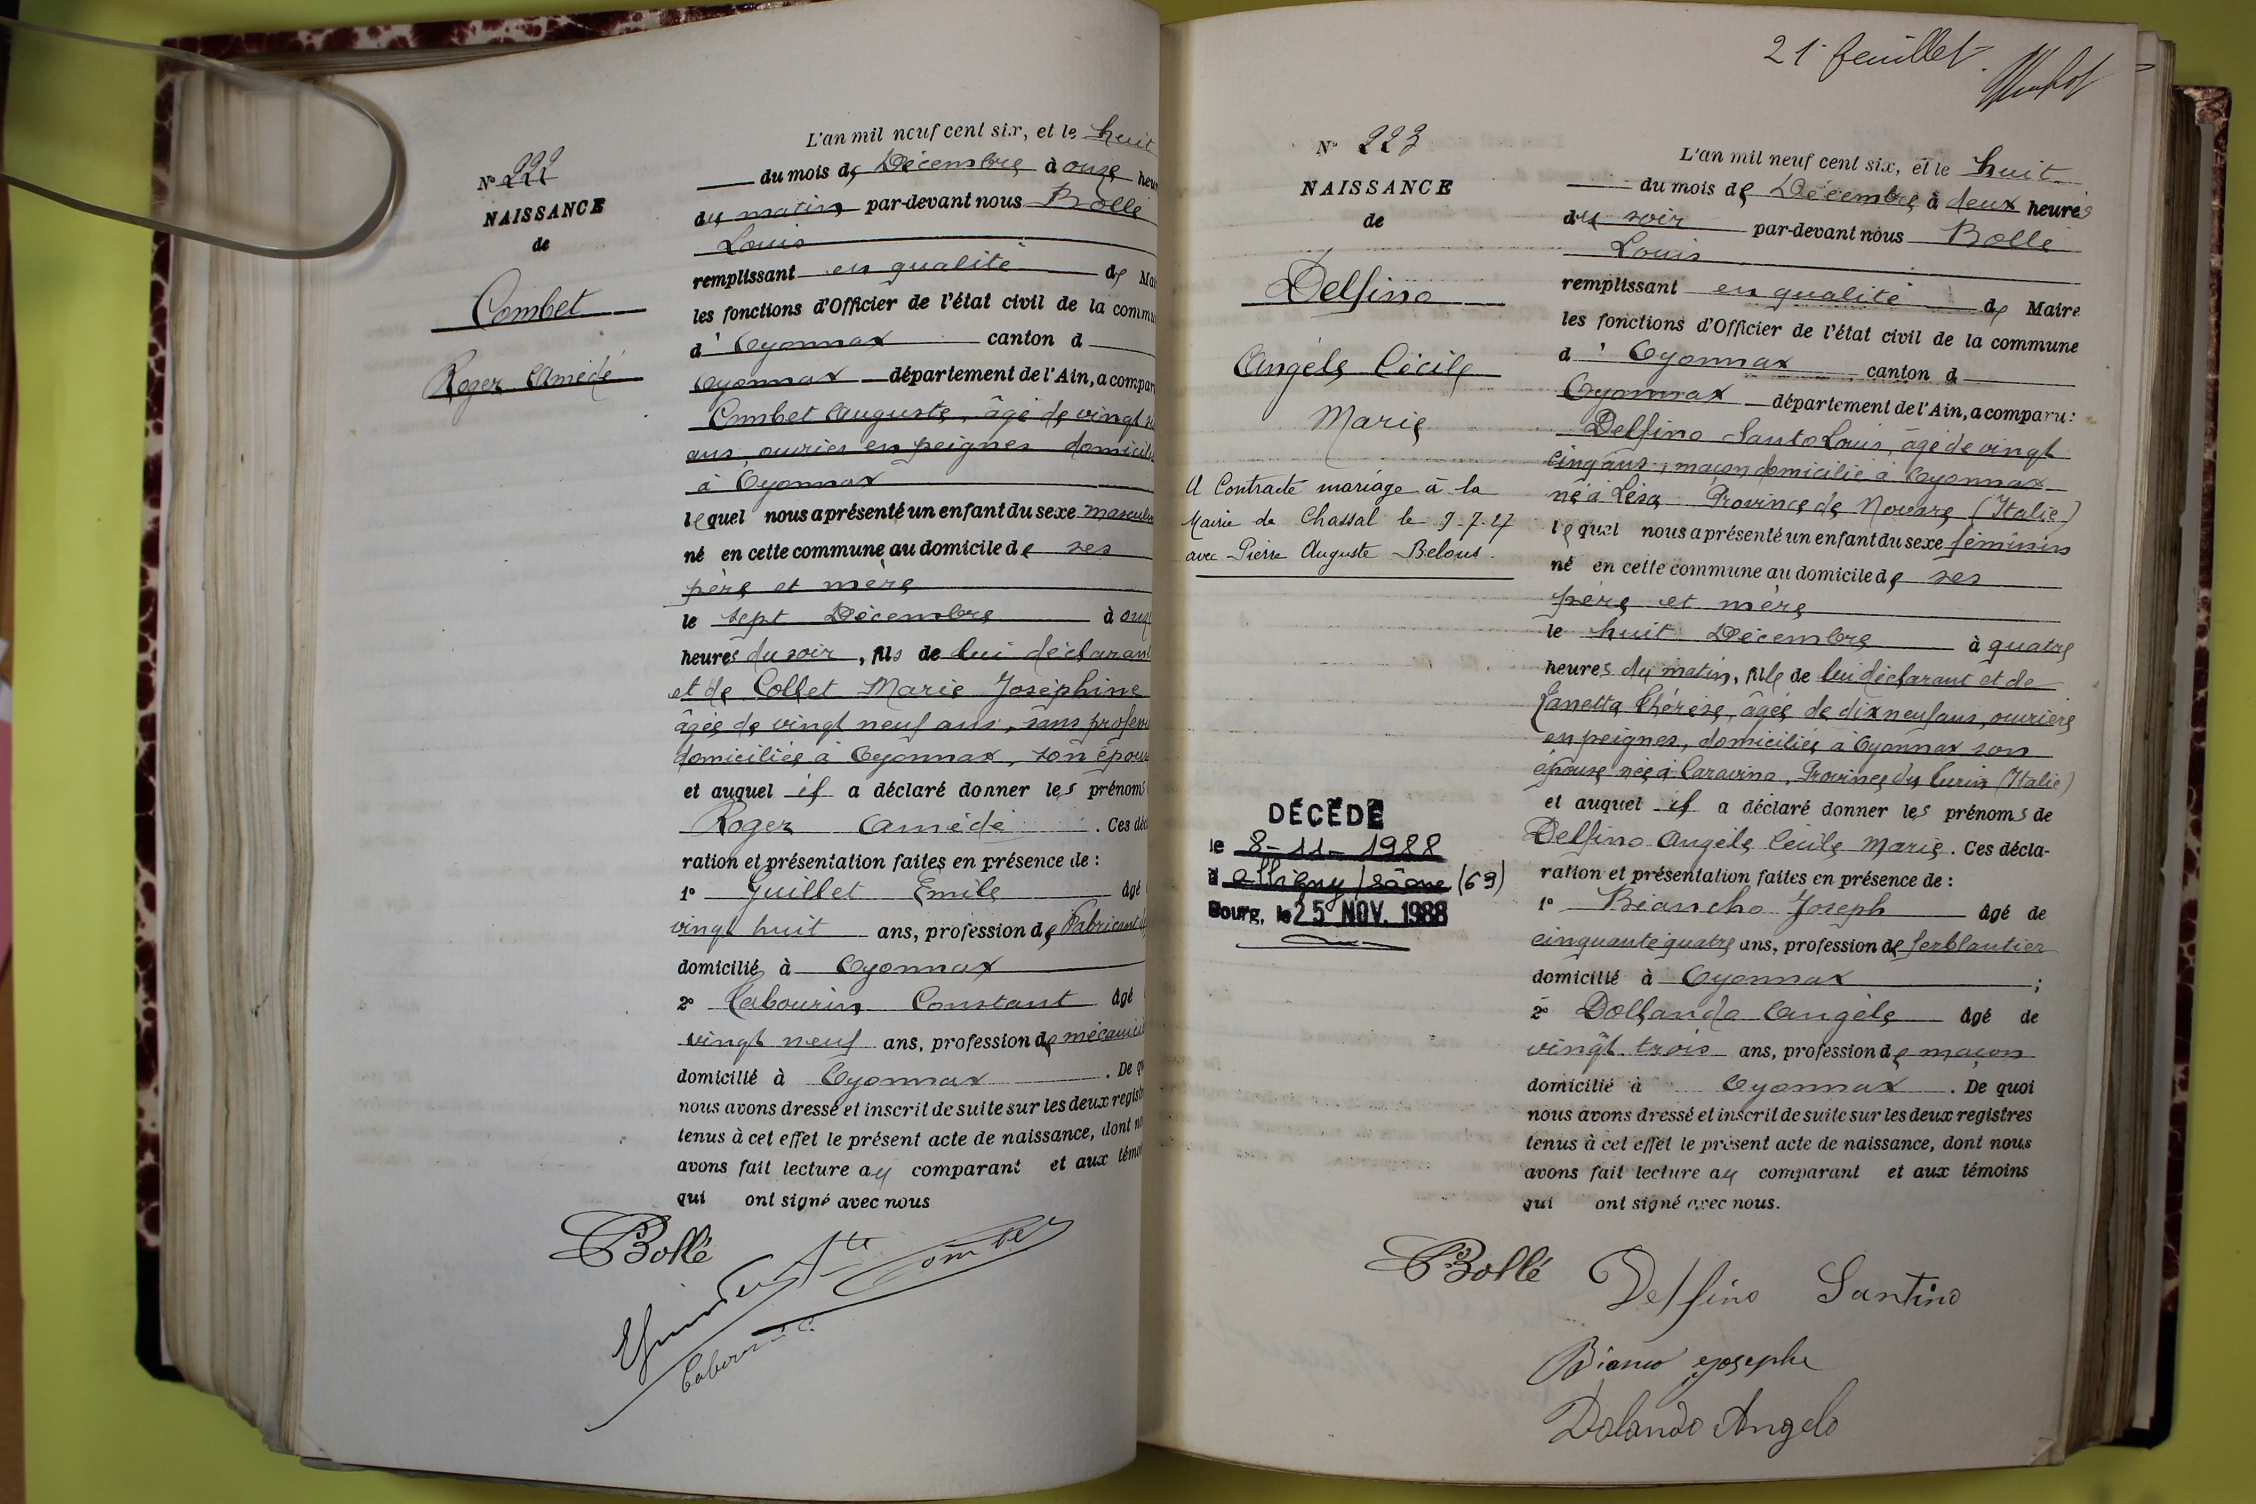 222
N° 221
NAISSANCE
de
Combet
Roger Amédé
L'an mil neuf cent six, et le huit
du mois de Décembre à onze heu
du matin par-devant nous Bollé
Louis
remplissant en qualité de Mai
les fonctions d'Officier de l'état civil de la commu
d' Oyonnax canton d
Oyonnax département de l'Ain, a compar
Combet Auguste, âgé de vingt
ans, ouvrier en peignes domicilié
à Oyonnax
lequel nous a présenté un enfant du sexe masculin
né en cette commune au domicile de ses
père et mère
le sept Décembre à onze
heures du soir, fils de lui déclarant
et de Collet Marie Joséphine
âgée de vingt neuf ans, sans profess
domiciliée à Oyonnax, son épouse
et auquel il a déclaré donner les prénoms
Roger Amédé . Ces décl
ration et présentation faites en présence de :
1° Guillet Emile âgé
vingt huit ans, profession de Fabricant
domicilié à Oyonnax
2° Tabourin Constant âgé
vingt neuf ans, profession de mécanici
domicilié à Oyonnax . De qu
nous avons dressé et inscrit de suite sur les deux regist
tenus à cet effet le présent acte de naissance, dont n
avons fait lecture au comparant et aux témoi
qui ont signé avec nous
Bollé
Combet
21e feuillet
N° 223
NAISSANCE
de
Delfino
Angèle Cécile
Marie
A Contracté mariage à la
Mairie de Chassal le 9-7-27
avec Pierre Auguste Belous.
DÉCÉDÉ
le 8-11-1988
à Albigny/Saône (69)
Bourg, le 25 NOV. 1988
L'an mil neuf cent six, et le huit
du mois de Décembre à deux heures
du soir par-devant nous Bollé
Louis
remplissant en qualité de Maire
les fonctions d'Officier de l'état civil de la commune
d' Oyonnax canton d
Oyonnax département de l'Ain, a comparu :
Delfino Santo Louis, âgé de vingt
cinq ans, maçon, domicilié à Oyonnax
né à Lésa Province de Novare (Italie)
lequel nous a présenté un enfant du sexe féminin
né en cette commune au domicile de ses
père et mère
le huit Décembre à quatre
heures du matin, fille de lui déclarant et de
Zanetta Thérèse, âgée de dix neuf ans, ouvrière
en peignes, domiciliée à Oyonnax son
épouse née à Caravino, Province du Turin (Italie)
et auquel il a déclaré donner les prénoms de
Delfino Angèle Cécile Marie. Ces décla-
ration et présentation faites en présence de :
1° Biancho Joseph âgé de
cinquante quatre ans, profession de ferblantier
domicilié à Oyonnax ;
2° Dollando Angèle âgé de
vingt trois ans, profession de maçon
domicilié à Oyonnax . De quoi
nous avons dressé et inscrit de suite sur les deux registres
tenus à cet effet le présent acte de naissance, dont nous
avons fait lecture au comparant et aux témoins
qui ont signé avec nous.
Bollé Delfino Santino
Bianco Josephe
Dolando Angelo